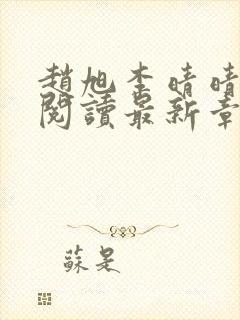 趙旭李晴晴
閱讀最新章
蘇是